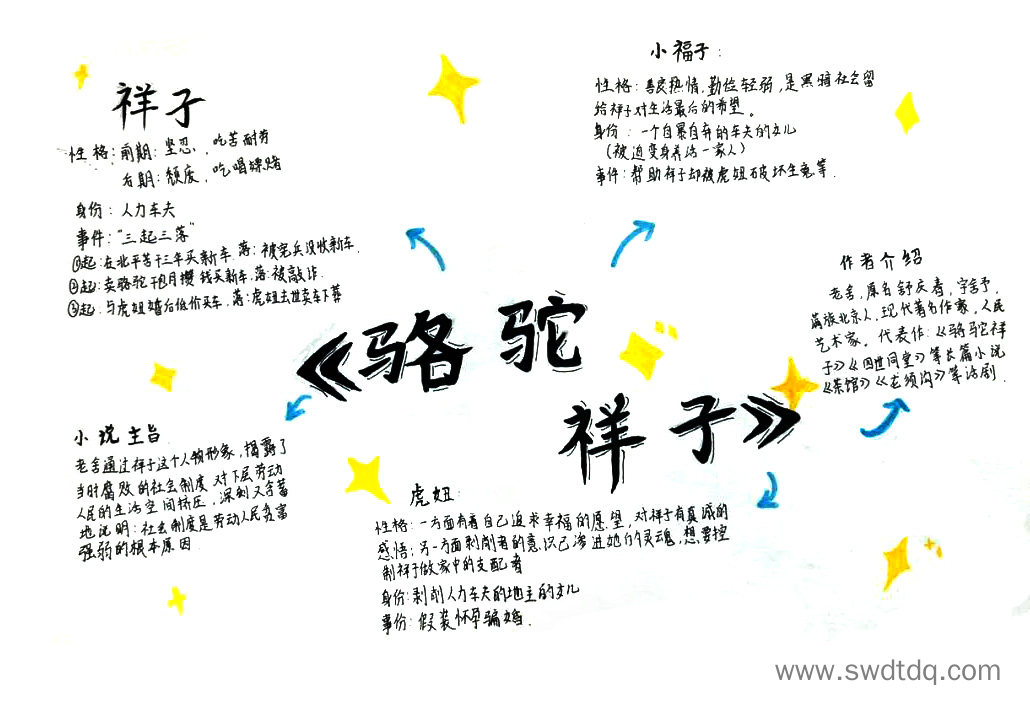 祥子
性格:前期:坚忍、吃苦耐劳
后期:颓废、吃喝嫖赌
身份:人力车夫
事件:“三起三落”
①起:在北平苦干三年买新车.落:被宪兵没收新车.
②起:卖骆驼干包月攒钱买新车.落:被敲诈.
③起.与虎妞婚后低价买车.落:虎妞去世卖车下葬
小福子:
性格:善良热情,勤俭轻弱,是黑暗社会留
给祥子对生活最后的希望。
身份:一个自暴自弃的车夫的女儿
(被迫变身养活一家人)
事件:帮助祥子却被虎妞破坏生意等.
作者介绍
老舍,原名舒庆春,字舍予,
满族北京人,现代著名作家,人民
艺术家。代表作:《骆驼祥
子》《四世同堂》等长篇小说
《茶馆》《龙须沟》等话剧.
《骆驼
祥子》
小说主旨
老舍通过祥子这个人物形象,揭露了
当时腐败的社会制度对下层劳动
人民的生活空间挤压,深刻又含蓄
地说明:社会制度是劳动人民贫富
强弱的根本原因.
虎妞:
性格:一方面有着自己追求幸福的愿望,对祥子有真诚的
感悟;另一方面剥削者的意识已渗进她的灵魂,想要控
制祥子做家中的支配者
身份:剥削人力车夫的地主的女儿
事份:假装怀孕骗婚.
www.swdtdq.com